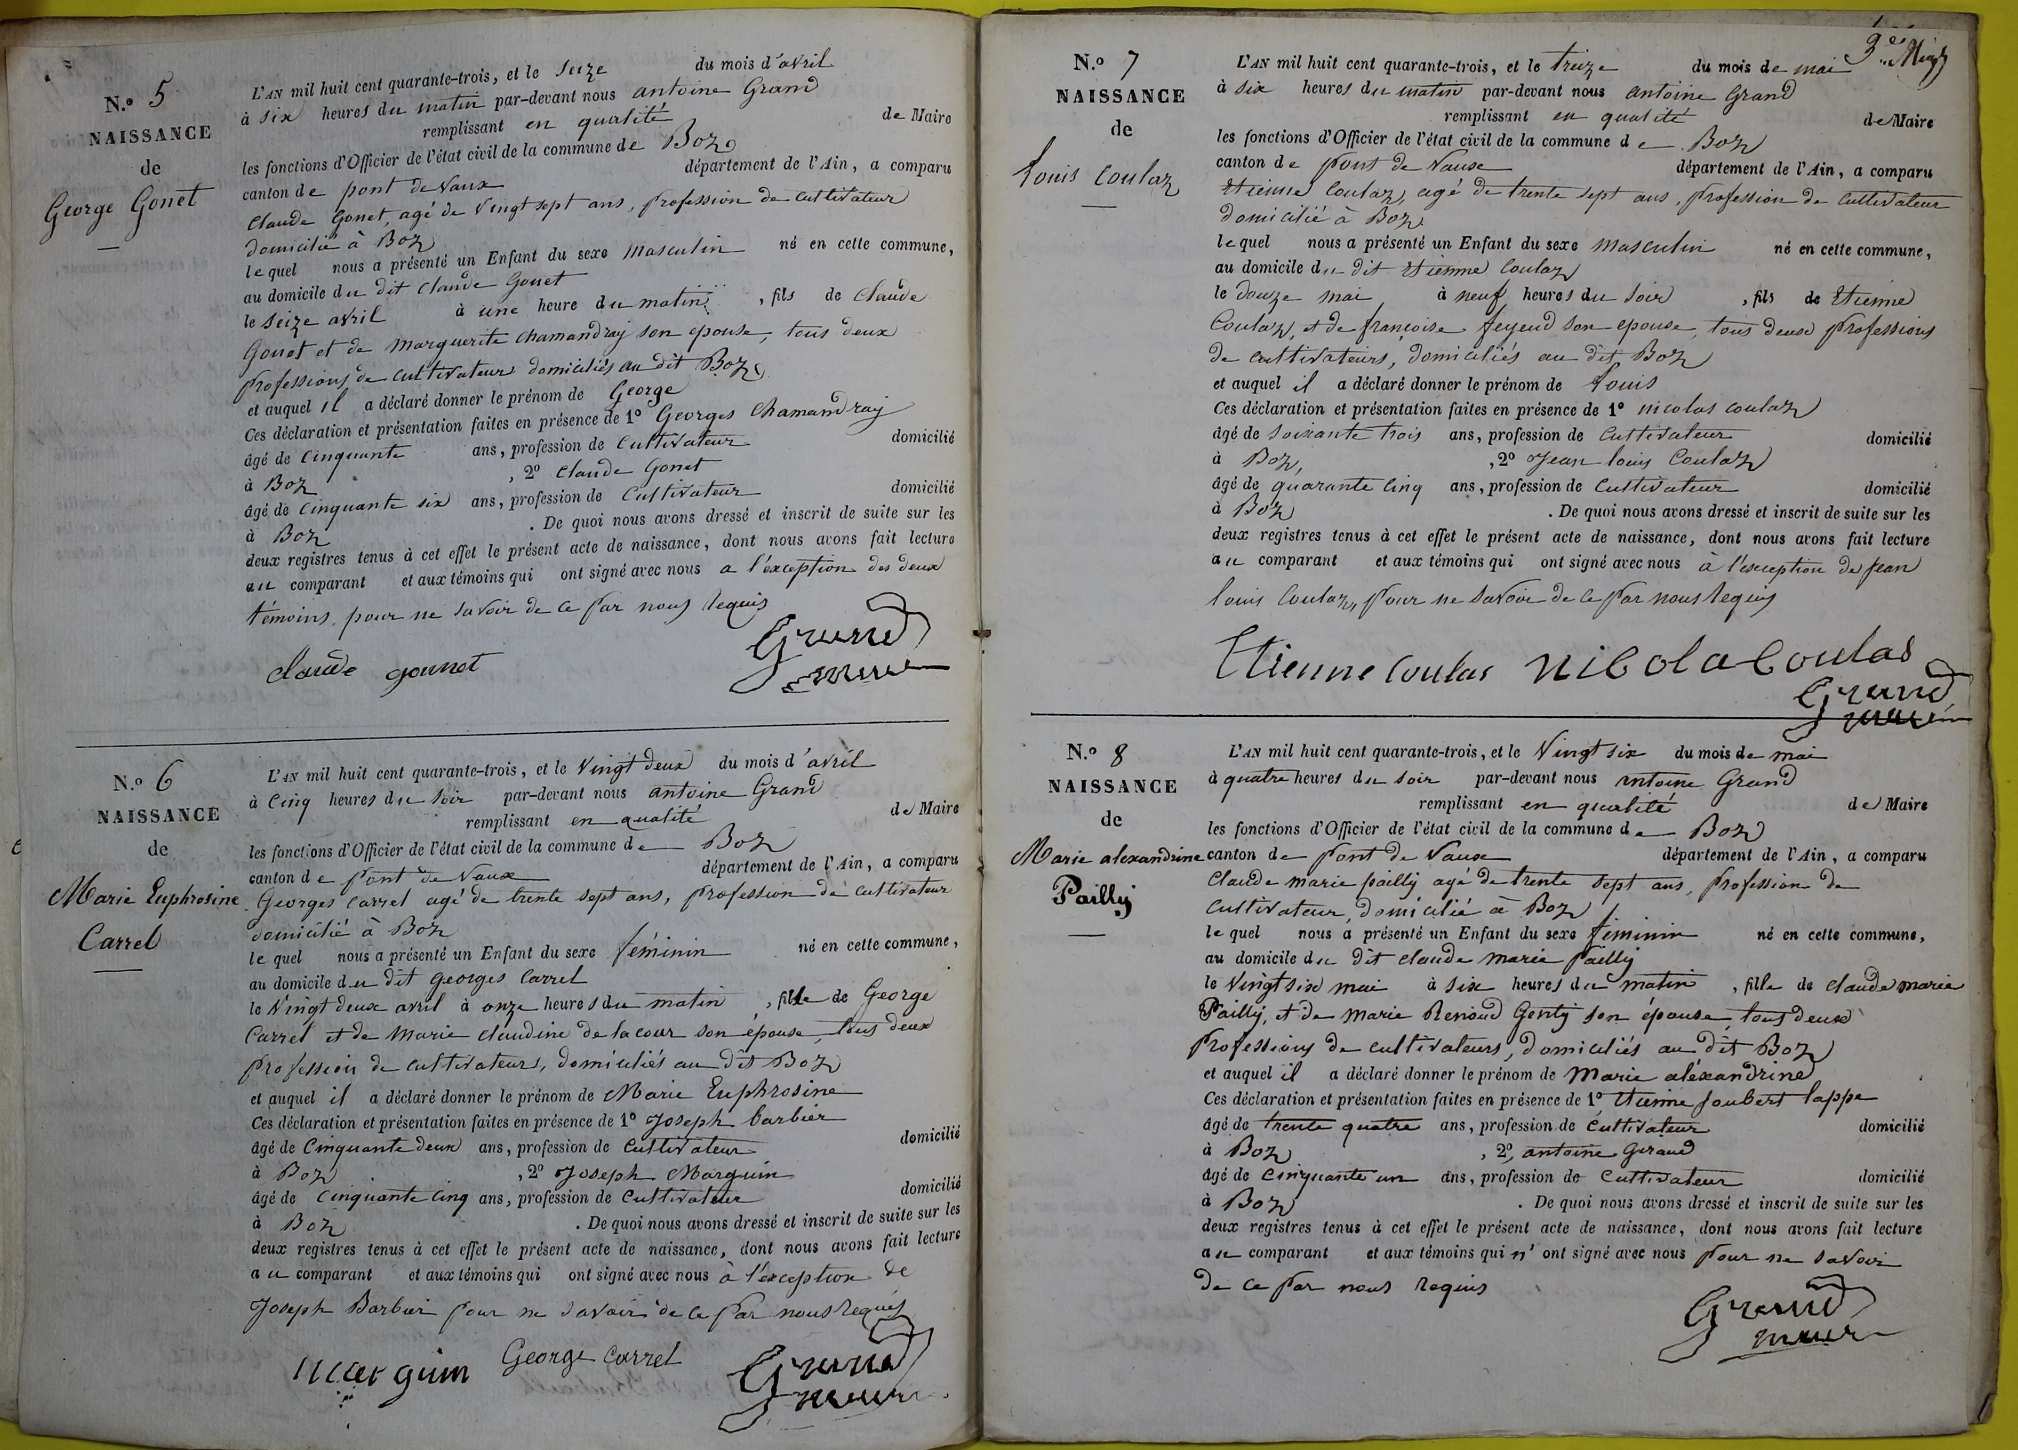 N.º 5
NAISSANCE
de
George Gonet
L'AN mil huit cent quarante-trois, et le seize du mois d'avril
à six heures du matin par-devant nous antoine Grand
remplissant en qualité de Maire
les fonctions d'Officier de l'état civil de la commune de Boz
canton de pont de Vaux département de l'Ain, a comparu
Claude Gonet, agé de Vingt sept ans, profession de cultivateur
domicilié à Boz
lequel nous a présenté un Enfant du sexe masculin né en cette commune,
au domicile du dit Claude Gonet
le seize avril à une heure du matin, fils de Claude
Gonet et de Marguerite Chamandray son epouse, tous deux
professions de cultivateurs domiciliés au dit Boz
et auquel il a déclaré donner le prénom de George
Ces déclaration et présentation faites en présence de 1º Georges Chamandray
âgé de Cinquante ans, profession de Cultivateur domicilié
à Boz, 2º Claude Gonet
âgé de Cinquante six ans, profession de Cultivateur domicilié
à Boz. De quoi nous avons dressé et inscrit de suite sur les
deux registres tenus à cet effet le présent acte de naissance, dont nous avons fait lecture
au comparant et aux témoins qui ont signé avec nous a l'exception des deux
témoins, pour ne savoir de ce par nous requis
claude gonnet Grand
maire
N.º 6
NAISSANCE
de
Marie Euphrosine
Carrel
L'AN mil huit cent quarante-trois, et le Vingt deux du mois d'avril
à Cinq heures du soir par-devant nous antoine Grand
remplissant en qualité de Maire
les fonctions d'Officier de l'état civil de la commune de Boz
canton de pont de Vaux département de l'Ain, a comparu
Georges Carrel agé de trente sept ans, profession de cultivateur
domicilié à Boz
lequel nous a présenté un Enfant du sexe féminin né en cette commune,
au domicile du dit Georges Carrel
le Vingt deux avril à onze heures du matin, fille de George
Carrel et de Marie claudine de la cour son épouse, tous deux
profession de cultivateurs, domiciliés au dit Boz
et auquel il a déclaré donner le prénom de Marie Euphrosine
Ces déclaration et présentation faites en présence de 1º Joseph barbier
âgé de Cinquante deux ans, profession de Cultivateur domicilié
à Boz, 2º Joseph Marguin
âgé de Cinquante Cinq ans, profession de Cultivateur domicilié
à Boz. De quoi nous avons dressé et inscrit de suite sur les
deux registres tenus à cet effet le présent acte de naissance, dont nous avons fait lecture
au comparant et aux témoins qui ont signé avec nous à l'exception de
Joseph Barbier pour ne savoir de ce par nous requis
marguin George Carrel Grand
maire
N.º 7
NAISSANCE
de
Louis Coulaz
L'AN mil huit cent quarante-trois, et le treize du mois de mai
à six heures du matin par-devant nous antoine Grand
remplissant en qualité de Maire
les fonctions d'Officier de l'état civil de la commune de Boz
canton de pont de Vaux département de l'Ain, a comparu
Etienne Coulaz, agé de trente sept ans, profession de Cultivateur
domicilié à Boz
lequel nous a présenté un Enfant du sexe masculin né en cette commune,
au domicile du dit Etienne Coulaz
le douze mai à neuf heures du soir, fils de Etienne
Coulaz, et de françoise feyeud son epouse, tous deux professions
de cultivateurs, domiciliés au dit Boz
et auquel il a déclaré donner le prénom de Louis
Ces déclaration et présentation faites en présence de 1º nicolas coulaz
âgé de soixante trois ans, profession de Cultivateur domicilié
à Boz, 2º Jean louis Coulaz
âgé de quarante Cinq ans, profession de Cultivateur domicilié
à Boz. De quoi nous avons dressé et inscrit de suite sur les
deux registres tenus à cet effet le présent acte de naissance, dont nous avons fait lecture
au comparant et aux témoins qui ont signé avec nous à l'exception de jean
louis Coulaz, pour ne savoir de ce par nous requis
Etienne Coulas nicola Coulas
Grand
maire
N.º 8
NAISSANCE
de
Marie alexandrine
Pailly
L'AN mil huit cent quarante-trois, et le Vingt six du mois de mai
à quatre heures du soir par-devant nous antoine Grand
remplissant en qualité de Maire
les fonctions d'Officier de l'état civil de la commune de Boz
canton de pont de Vaux département de l'Ain, a comparu
Claude marie pailly agé de trente sept ans, profession de
Cultivateur, domicilié à Boz
lequel nous a présenté un Enfant du sexe féminin né en cette commune,
au domicile du dit claude marie pailly
le Vingt six mai à six heures du matin, fille de claude marie
Pailly, et de marie Renoud Genty son épouse, tous deux
professions de cultivateurs, domiciliés au dit Boz
et auquel il a déclaré donner le prénom de Marie aléxandrine
Ces déclaration et présentation faites en présence de 1º Etienne Joubert lappe
âgé de trente quatre ans, profession de Cultivateur domicilié
à Boz, 2º, antoine Geraud
âgé de Cinquante un ans, profession de Cultivateur domicilié
à Boz. De quoi nous avons dressé et inscrit de suite sur les
deux registres tenus à cet effet le présent acte de naissance, dont nous avons fait lecture
au comparant et aux témoins qui n'ont signé avec nous pour ne savoir
de ce par nous requis
Grand
maire